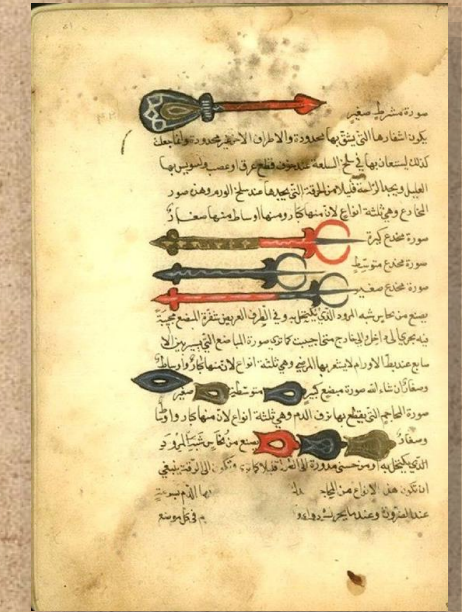 صورة مشرط صغير
يكون اشفارها التي يشق بها محدودة والاطراف الاخر غير محدودة وانما جعلت
كذلك ليستعان بها في سلخ السلعة عند خوف قطع عرق او عصب وليونس بها
العليل ويجد الراحة قليلا من الحرقة التي يجدها عند سلخ الورم وهذه صور
المخادع وهي ثلثة انواع لان منها كبار ومنها اوساط ومنها صغار
صورة مخدع كبير
صورة مخدع متوسط
صورة مخدع صغير
يصنع من نحاس شبه المرود الذي يكتحل به وفي الطرف العريض شفرة المبضع مخبية
فيه يجري الى داخل الى خارج متى احببت كما ترى صورة المباضع التي بين الا
صابع عند بط الاورام لا يشعر بها المرضى وهي ثلثة انواع لان منها كبار واوساط
وصغار ان شاء الله صورة مبضع كبير متوسط صغير
صورة المحاجم التي يقطع بها نزف الدم وهي ثلثة انواع لان منها كبار واوساط
وصغار يصنع من نحاس شبيه المرود
الذي يكتحل به او من صيني مدورة الى الطول قليلا كما ترى وتكون الى الرقة ينبغي
ان تكون هذه الانواع من المحاجم بها الدم بسرعة
عند الضرورة وعندما يحضرك دواء في كل موضع